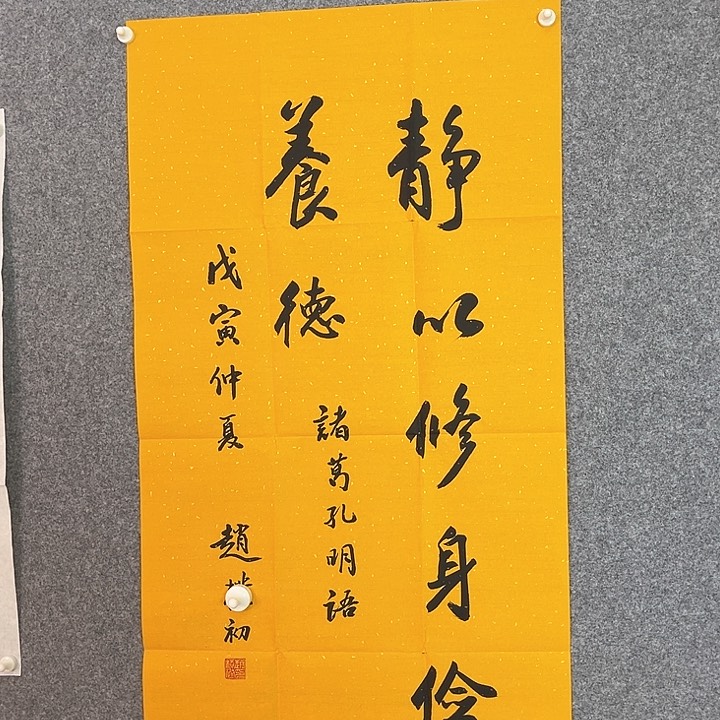 静以修身儉
養德
諸葛孔明語
戊寅仲夏
趙 初